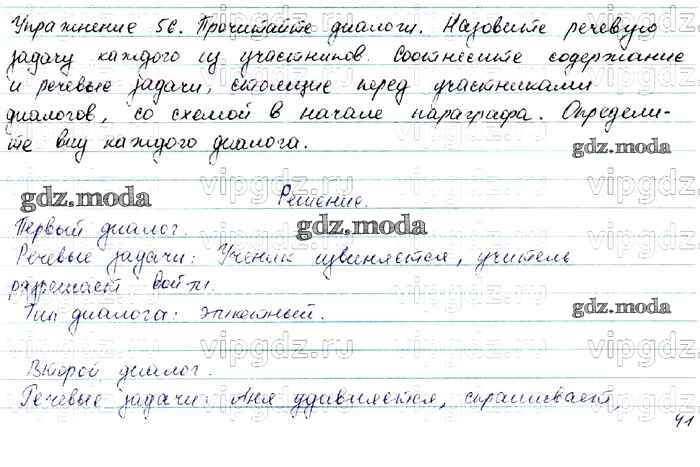 Упражнение 56. Прочитайте диалоги. Назовите речевую
задачу каждого из участников. Соотнесите содержание
и речевые задачи, стоящие перед участниками
диалогов, со схемой в начале параграфа. Определи-
те вид каждого диалога.
gdz.moda
gdz.moda
Решение.
Первый диалог.
gdz.moda
Речевые задачи: Ученик извиняется, учитель
разрешает войти.
Тип диалога: этикетный.
gdz.moda
Второй диалог.
Речевые задачи: Аня удивляется, спрашивает,
41
vipgdz.ru